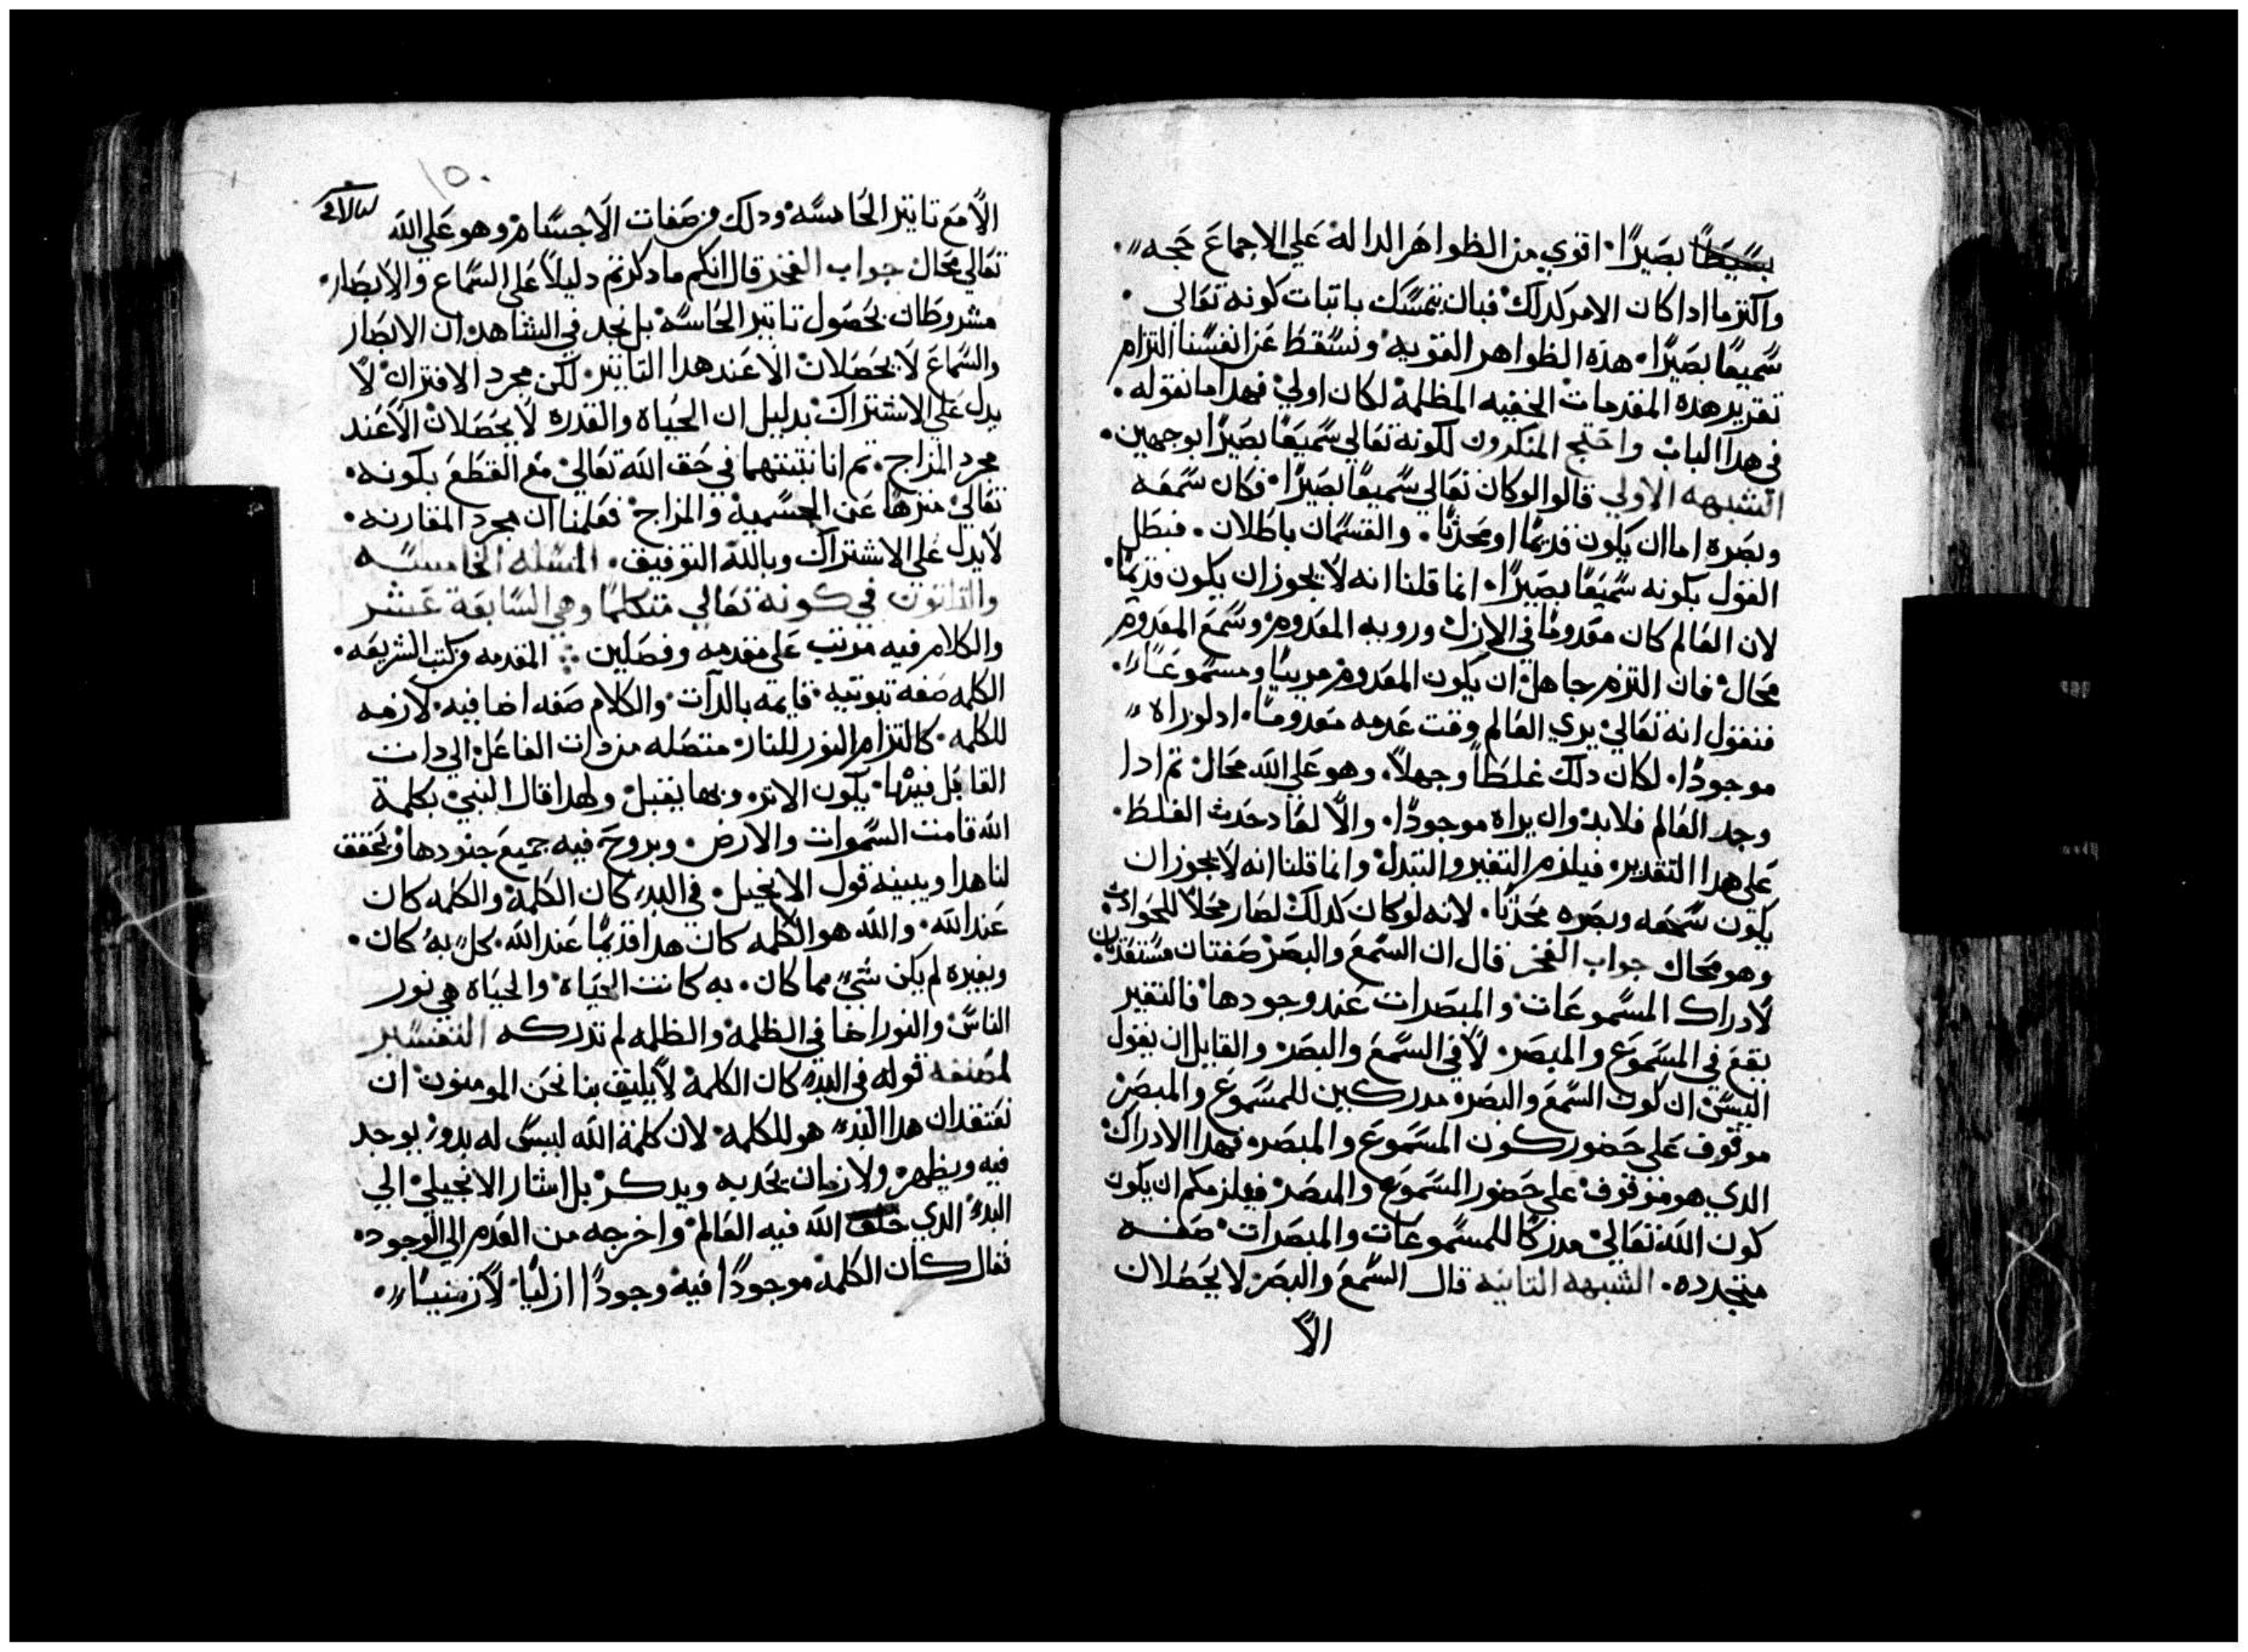 بصيرًا۰ اقوي من الظواهر الداله علي الاجماع حجه
واكثر ما اداكان الامر كدلك فبان نتمسك باتبات كونه تعالي
سميعًا بصيرًا۰ هذه الظواهر القويه ونسقط عن انفسنا التزام
تقرير هده المقدمات الخفيه المظلمة لكان اولي فهدا ما نقوله۰
في هدا الباب واحتج المنكرون لكونه تعالي سميعًا بصيرًا بوجهين۰
الشبهه الاولي قالوا لوكان تعالي سميعًا بصيرًا فكان سمعه
وبصره اما ان يكون قديمًا او محدثًا۰ والقسمان باطلان۰ فبطل
القول بكونه سميعًا بصيرًا۰ انما قلنا انه لا يجوز ان يكون قديمًا
لان العالم كان معدومًا في الازل ورويه المعدوم وسمع المعدوم
محال فان التزم جاهل ان يكون المعدوم مرييًا ومسموعًا
فنقول انه تعالي يري العالم وقت عدمه معدومًا۰ اد لو راه
موجودًا۰ لكان دلك غلطاً وجهلاً۰ وهو علي الله محال تم ادا
وجد العالم فلابد وان يراه موجودًا۰ والا لعاد حدث الغلط۰
علي هدا التقدير فيلزم التغير والتبدل وانما قلنا انه لا يجوز ان
يكون سمعه وبصره محدثًا۰ لانه لوكان كدلك لصار محلاً للحوادث
وهو محال جواب الفخر قال ان السمع والبصر صفتان مستعدتان
لادراك المسموعات والمبصرات عند وجودها فالتغير
يقع في المسموع والمبصر۰ لا في السمع والبصر والقايل ان يقول
اليس ان كون السمع والبصر مدركين للمسموع والمبصر
موقوف علي حضور كون المسموع والمبصر فهدا الادراك
الدي هو موقوف علي حضور المسموع والمبصر فيلزمكم ان يكون
كون الله تعالي مدركًا للمسموعات والمبصرات صفه
متجدده۰ الشبهه التانيه قال السمع والبصر لا يحصلان
الا
١٥٠
الا مع تاتير الحاسه ودلك من صفات الاجسام وهو علي الله
تعالي محال جواب الفخر قال انكم ما دكرتم دليلاً علي السماع والابصار۰
مشروطان بحصول تاتير الحاسه بل نجد في الشاهد ان الابصار
والسماع لا يحصلان الا عند هدا التاتير۰ لكن مجرد الاقتران لا
يدل علي الاشتراك بدليل ان الحياه والقدره لا يحصلان الا عند
مجرد المزاج۰ تم انا نتبتهما في حق الله تعالي مع القطع بكونه۰
تعالي منزهًا عن الجسميه والمزاج فعلمنا ان مجرد المقارنه۰
لا يدل علي الاشتراك وبالله التوفيق۰ المسله الخامسه
والتلاتون في كونه تعالي متكلمًا وهي السابعة عشر
والكلام فيه مرتب علي مقدمه وفصلين ۰ المقدمه من كتب الشريعه۰
الكلمه صفه تبوتيه قايمه بالدات والكلام صفه اضافيه لازمه
للكلمه۰ كالتزام النور للنار متصله من دات الفاعل الي دات
القابل فيها يكون الاتر وبها يقبل ولهدا قال النبي بكلمة
الله قامت السموات والارض۰ وبروح فيه جميع جنودها وتحقق
لنا هدا ويبينه قول الانجيل۰ في البدء كان الكلمة والكلمه كان
عند الله۰ والله هو الكلمه كان هدا قديمًا عند الله۰ كل به كان۰
وبغيره لم يكن شي مما كان۰ به كانت الحياه والحياه هي نور
الناس والنور اضا في الظلمه والظلمه لم تدركه التفسير
لمصنفه قوله في البدء كان الكلمة لا يليق بنا نحن المومنون ان
نعتقد ان هدا البدء هو للكلمه لان كلمة الله ليس له بدو يوجد
فيه ويظهر ولا زمان يحد به ويدكر بل اشار الانجيلي الي
البدء الدي خلق الله فيه العالم واخرجه من العدم الي الوجود۰
فقال كان الكلمة موجودًا فيه وجودًا ازليًا لا زمنيًا